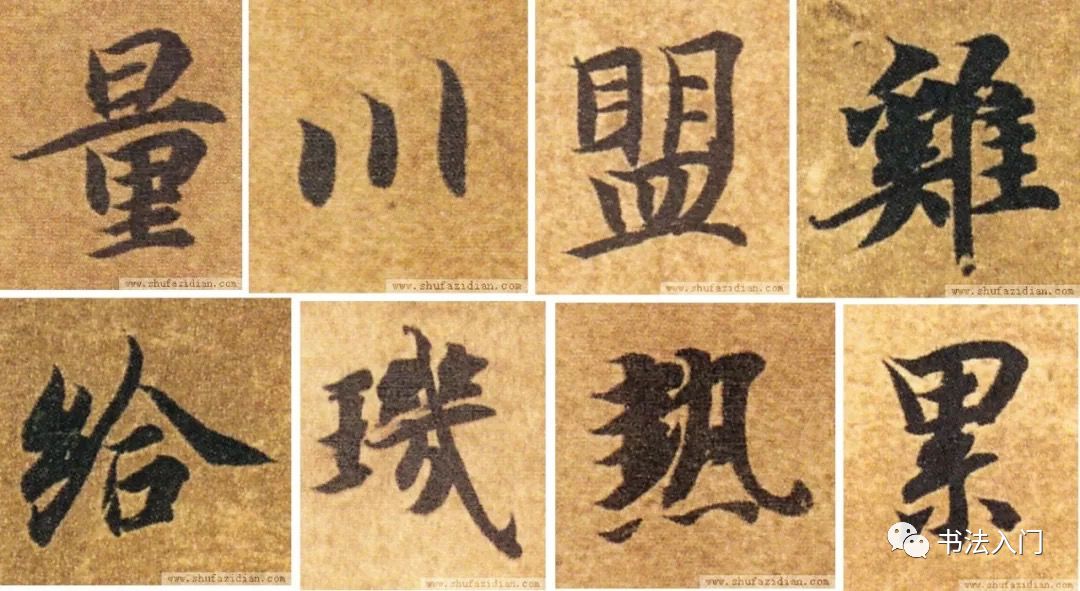 量 川 盟 雞
www.shufazidian.com www.shufazidian.com www.shufazidian.com www.shufazidian.com
給 璣 熱 累
书法入门
www.shufazidian.com www.shufazidian.com www.shufazidian.com www.shufazidian.com